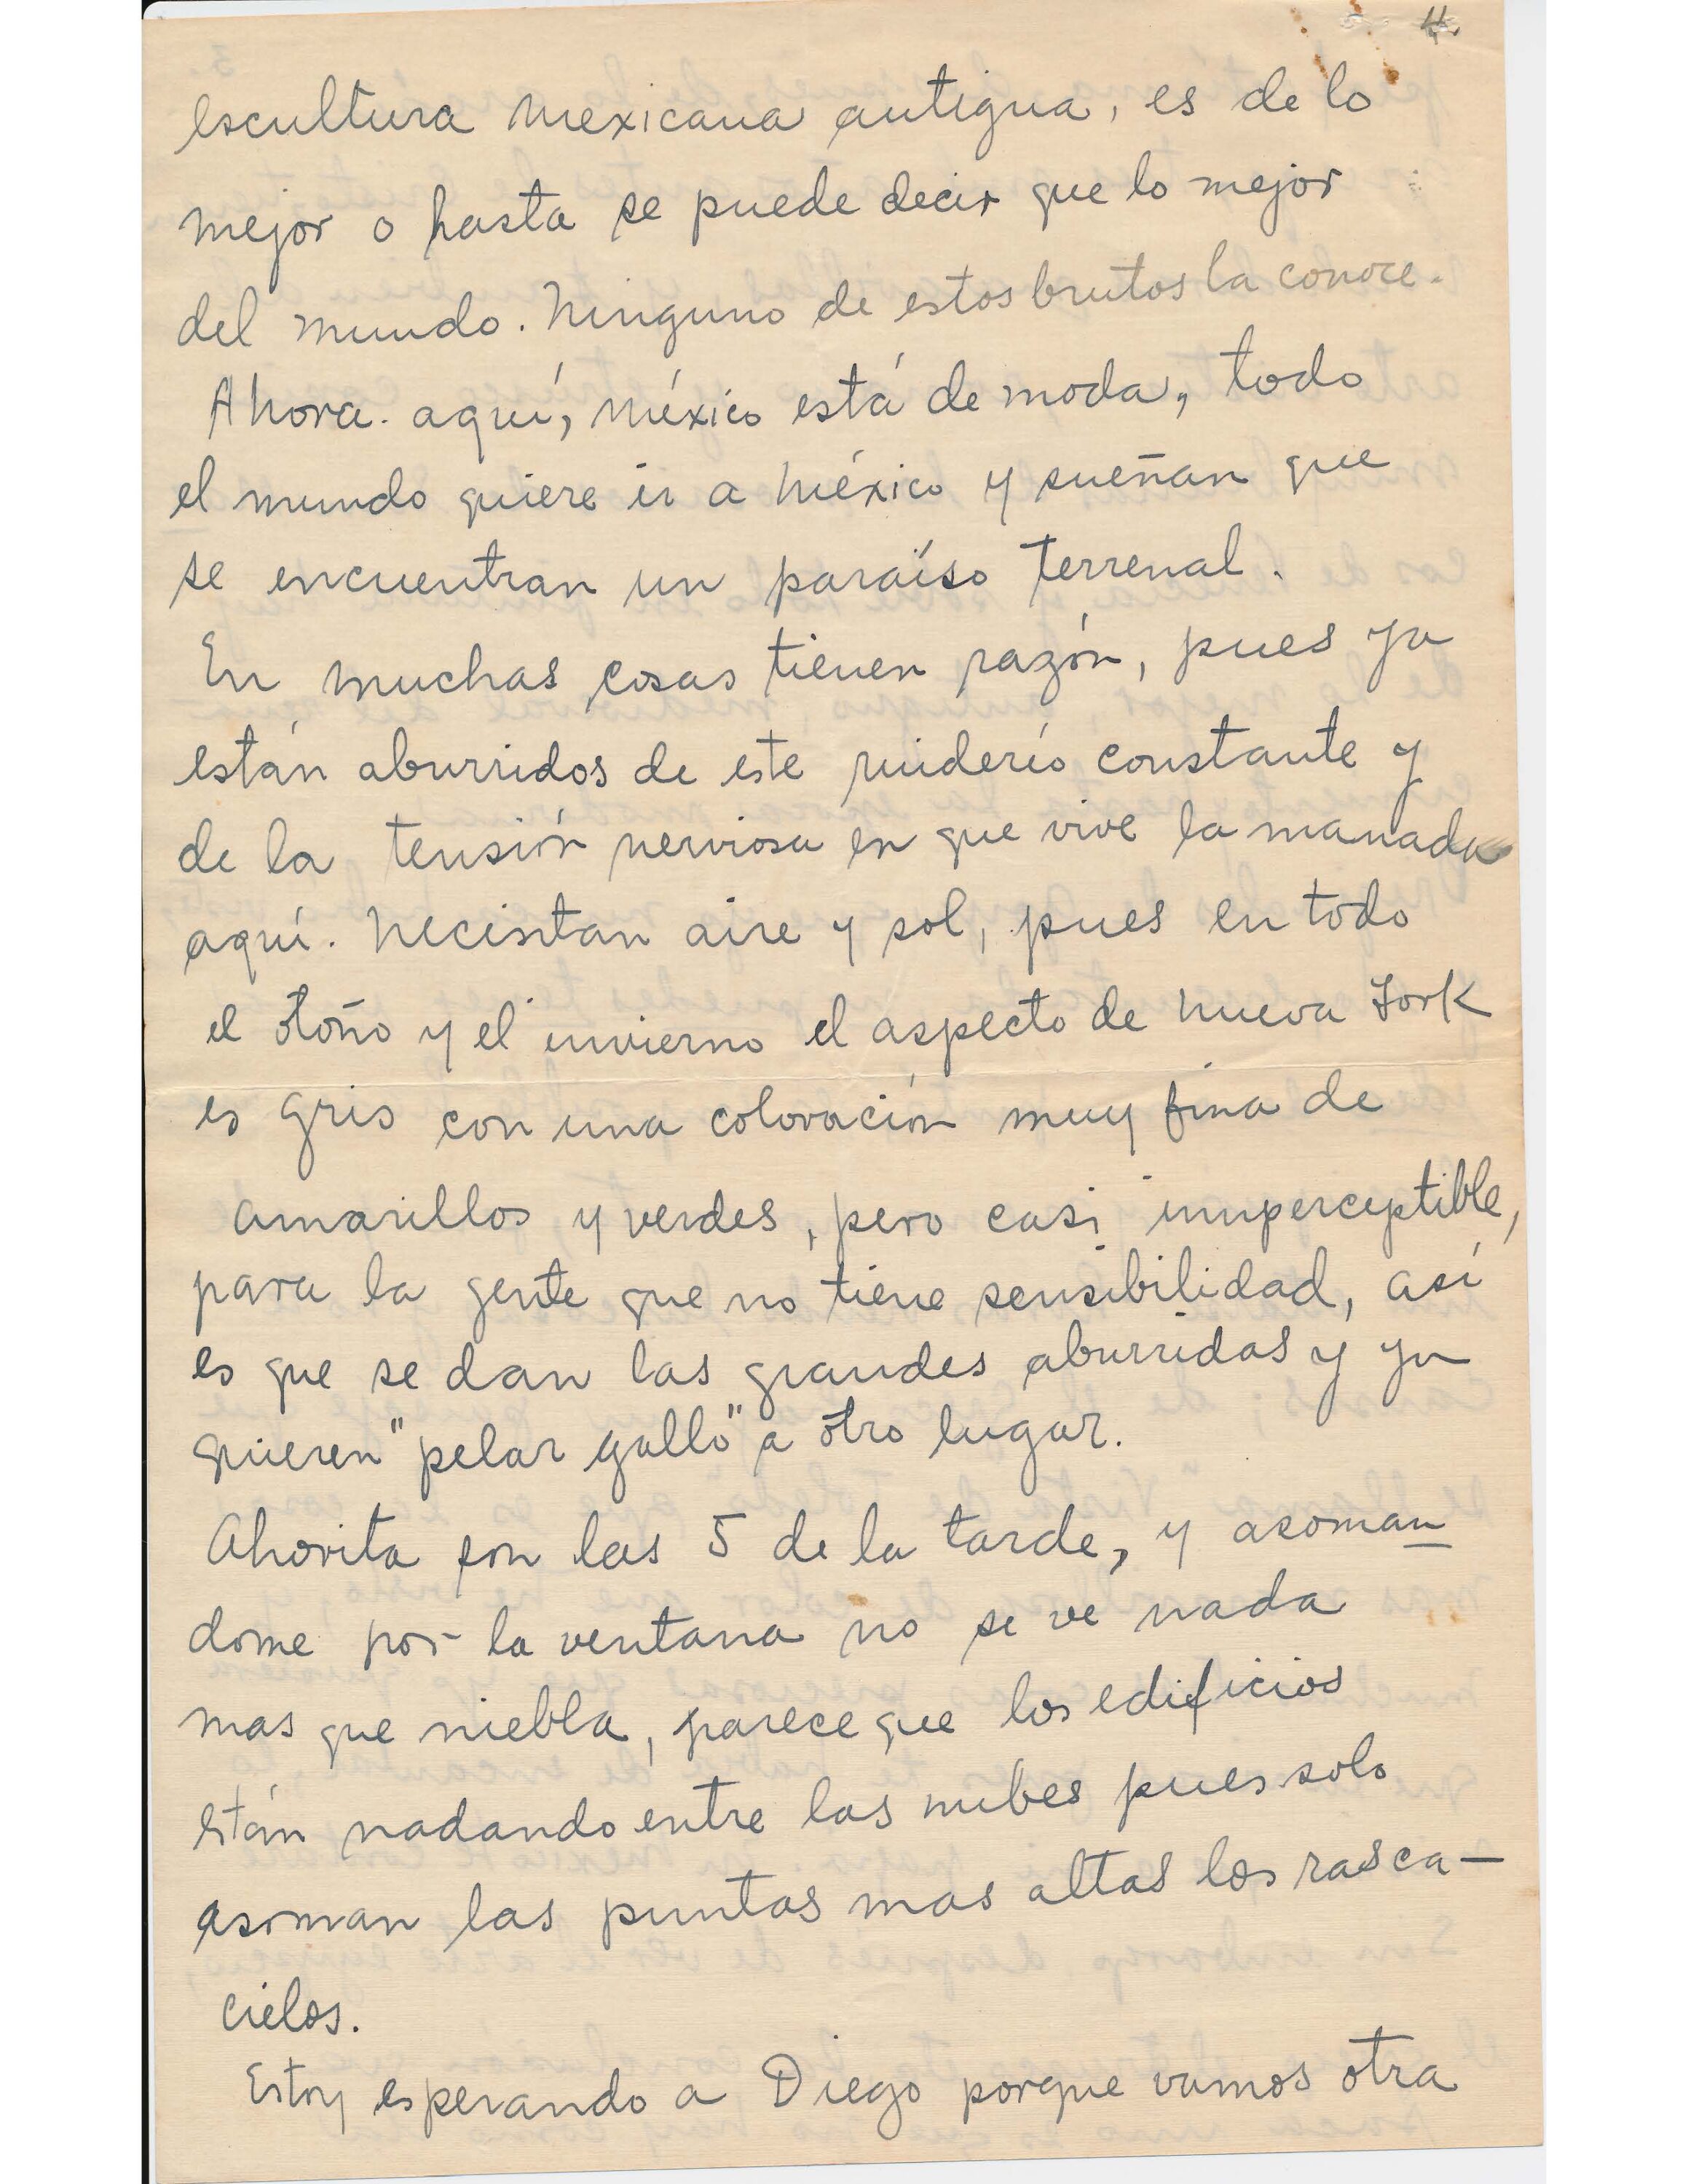 4.
escultura mexicana antigua, es de lo
mejor o hasta se puede decir que lo mejor
del mundo. Ninguno de estos brutos la conoce.
Ahora. aquí, México está de moda, todo
el mundo quiere ir a México y sueñan que
se encuentran un paraíso terrenal.
En muchas cosas tienen razón, pues ya
están aburridos de este ruiderío constante y
de la tensión nerviosa en que vive la manada
aquí. Necesitan aire y sol, pues en todo
el otoño y el invierno el aspecto de Nueva York
es gris con una coloración muy fina de
amarillos y verdes, pero casi imperceptible,
para la gente que no tiene sensibilidad, así
es que se dan las grandes aburridas y ya
quieren "pelar gallo" a otro lugar.
Ahorita son las 5 de la tarde, y asoman
dome por la ventana no se ve nada
mas que niebla, parece que los edificios
están nadando entre las nubes pues solo
asoman las puntas mas altas los rasca-
cielos.
Estoy esperando a Diego porque vamos otra